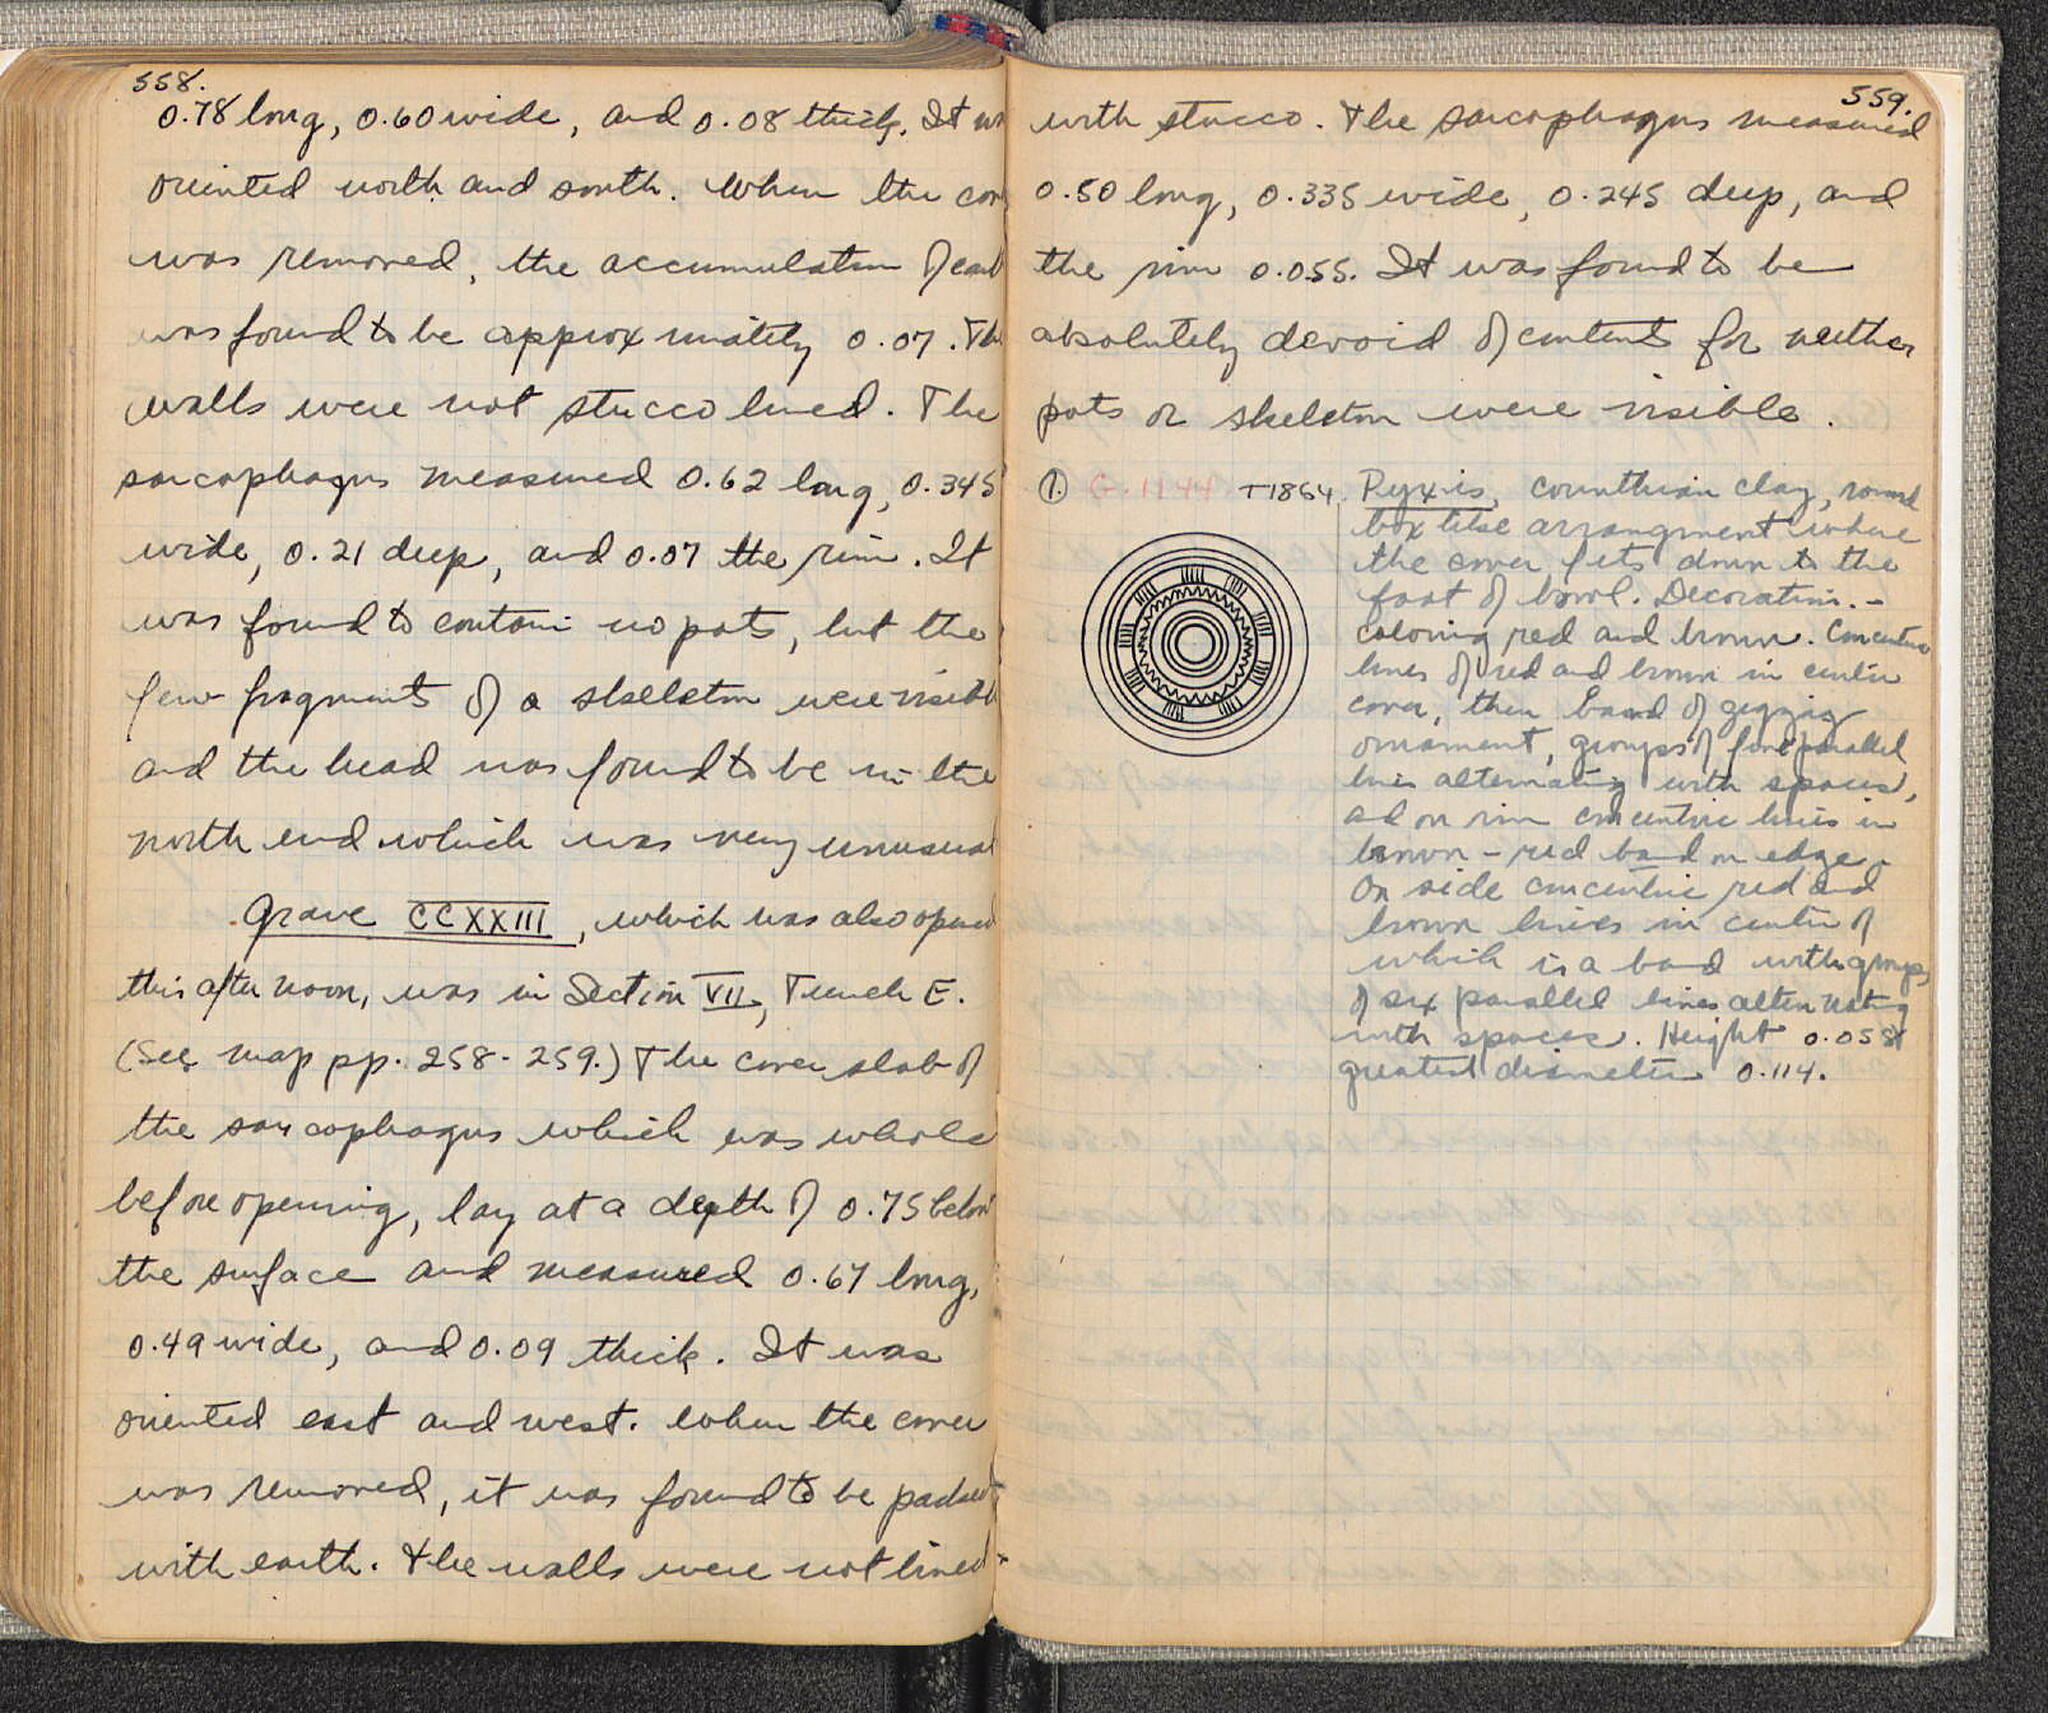 558.
0.78 long, 0.60 wide, and 0.08 thick. It
oriented north and south. When the
was removed, the accumulation of
was found to be approximately 0.07. The
walls were not stucco lined. The
sarcophagus measured 0.62 long, 0.345
wide, 0.21 deep, and 0.07 the rim. It
was found to contain no pots, but the
few fragments of a skeleton were visible
and the head was found to be in the
north end which was very unusual
Grave CCXXIII, which was also opened
this afternoon, was in Section VII, Trench E.
(See map pp. 258-259.) The cover slab of
the sarcophagus which was whole
before opening, lay at a depth of 0.75 below
the surface and measured 0.67 long,
0.49 wide, and 0.09 thick. It was
oriented east and west. When the cover
was removed, it was found to be packed
with earth. The walls were not lined
559.
with stucco. The sarcophagus measured
0.50 long, 0.335 wide, 0.245 deep, and
the rim 0.055. It was found to be
absolutely devoid of contents for neither
pots or skeleton were visible.
1. G.1144 T1864. Pyxis, corinthian clay, round
box like arrangment where
the cover fits down to the
foot of bowl. Decoration. -
coloring red and brown. Concentric
lines of red and brown in center
cover, then band of zigzag
ornament, groups of five parallel
lines alternating with spaces,
ad on rim concentric lines in
brown - red band on edge.
On side concentric red and
brown lines in center of
which is a band with groups
of six parallel lines alternating
with spaces. Height 0.058
greatest diameter 0.114.